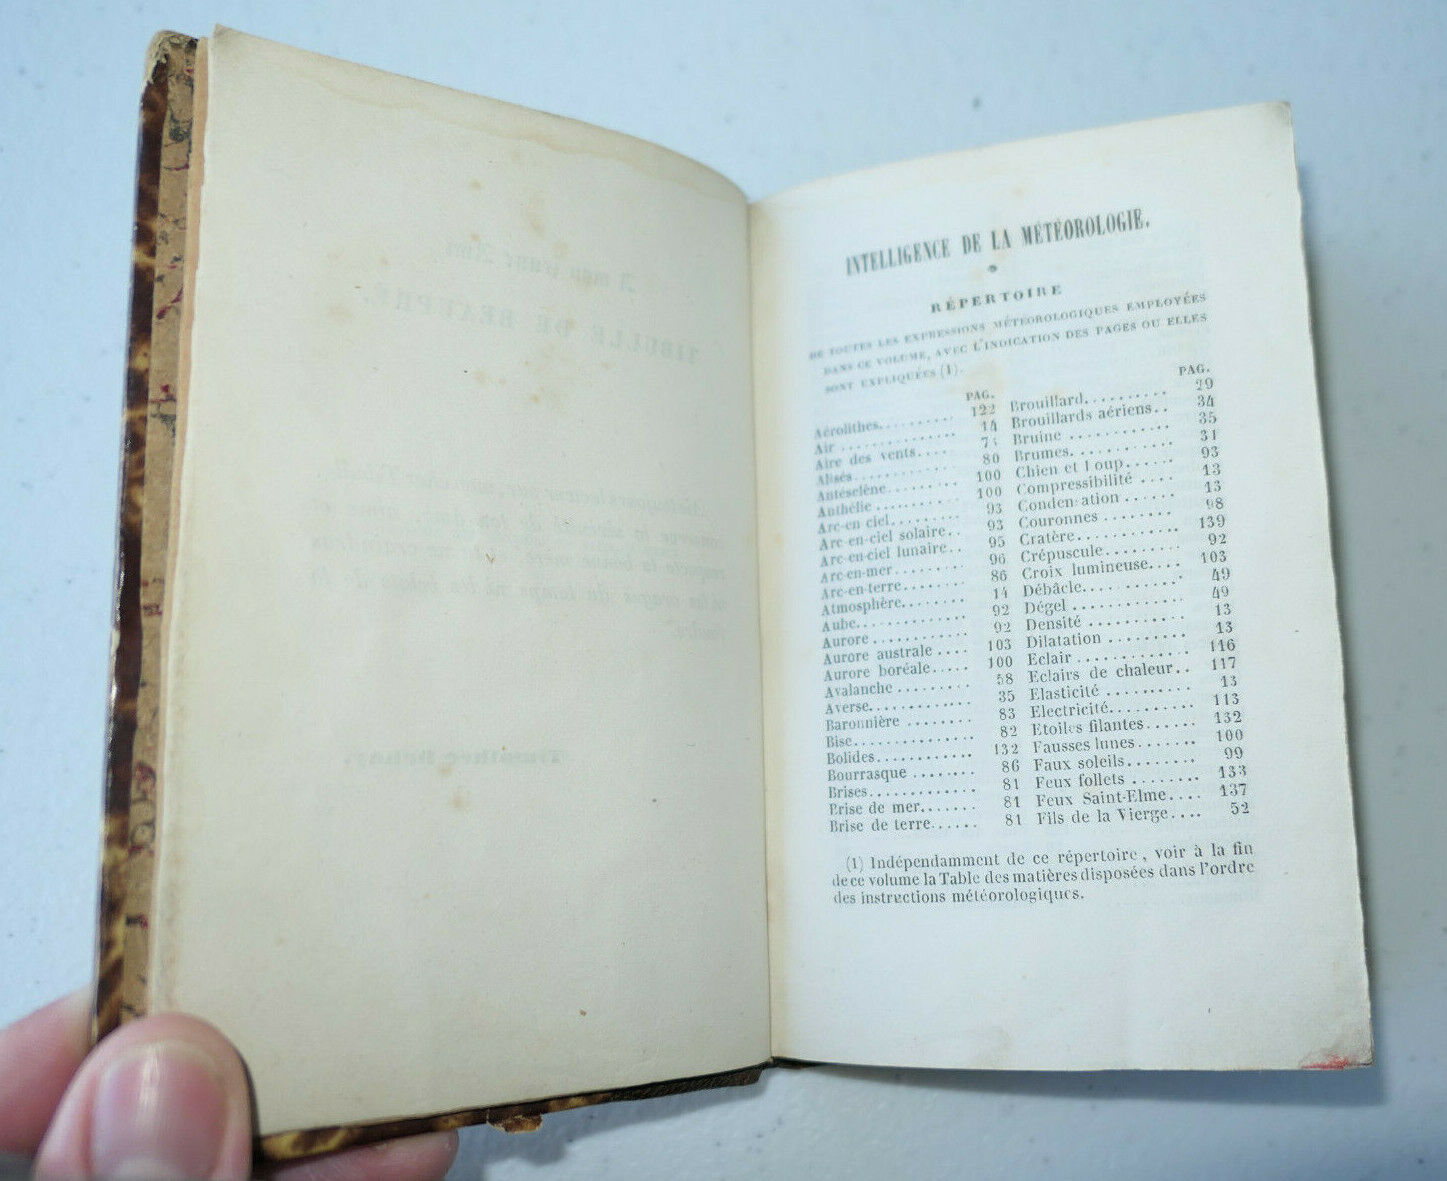 INTELLIGENCE DE LA MÉTÉOROLOGIE.
RÉPERTOIRE
DE TOUTES LES EXPRESSIONS MÉTÉOROLOGIQUES EMPLOYÉES
DANS CE VOLUME, AVEC L'INDICATION DES PAGES OU ELLES
SONT EXPLIQUÉES (1).
PAG.
Aérolithes.......... 122
Air .............. 14
Aire des vents.....
Alisés............ 80
Antéselène.......... 100
Anthélie ........... 100
Arc-en ciel.......... 93
Arc-en-ciel solaire.. 93
Arc-en-ciel lunaire.. 95
Arc-en-mer.......... 96
Arc-en-terre......... 86
Atmosphère......... 14
Aube............... 92
Aurore ............ 92
Aurore australe .... 103
Aurore boréale..... 100
Avalanche ......... 58
Averse............. 35
Baronnière ........ 83
Bise............... 82
Bolides............ 132
Bourrasque ........ 86
Brises............. 81
Brise de mer....... 81
Brise de terre...... 81
PAG.
Brouillard.......... 29
Brouillards aériens.. 34
Bruine ............ 35
Brumes............ 31
Chien et Loup...... 93
Compressibilité .... 13
Condensation ...... 13
Couronnes ........ 98
Cratère............ 139
Crépuscule......... 92
Croix lumineuse.... 103
Débâcle............ 49
Dégel ............. 49
Densité ........... 13
Dilatation ......... 13
Eclair ............. 116
Eclairs de chaleur.. 117
Elasticité .......... 13
Electricité.......... 113
Etoiles filantes...... 132
Fausses lunes....... 100
Faux soleils........ 99
Feux follets ........ 133
Feux Saint-Elme.... 137
Fils de la Vierge.... 52
(1) Indépendamment de ce répertoire, voir à la fin
de ce volume la Table des matières disposées dans l'ordre
des instructions météorologiques.